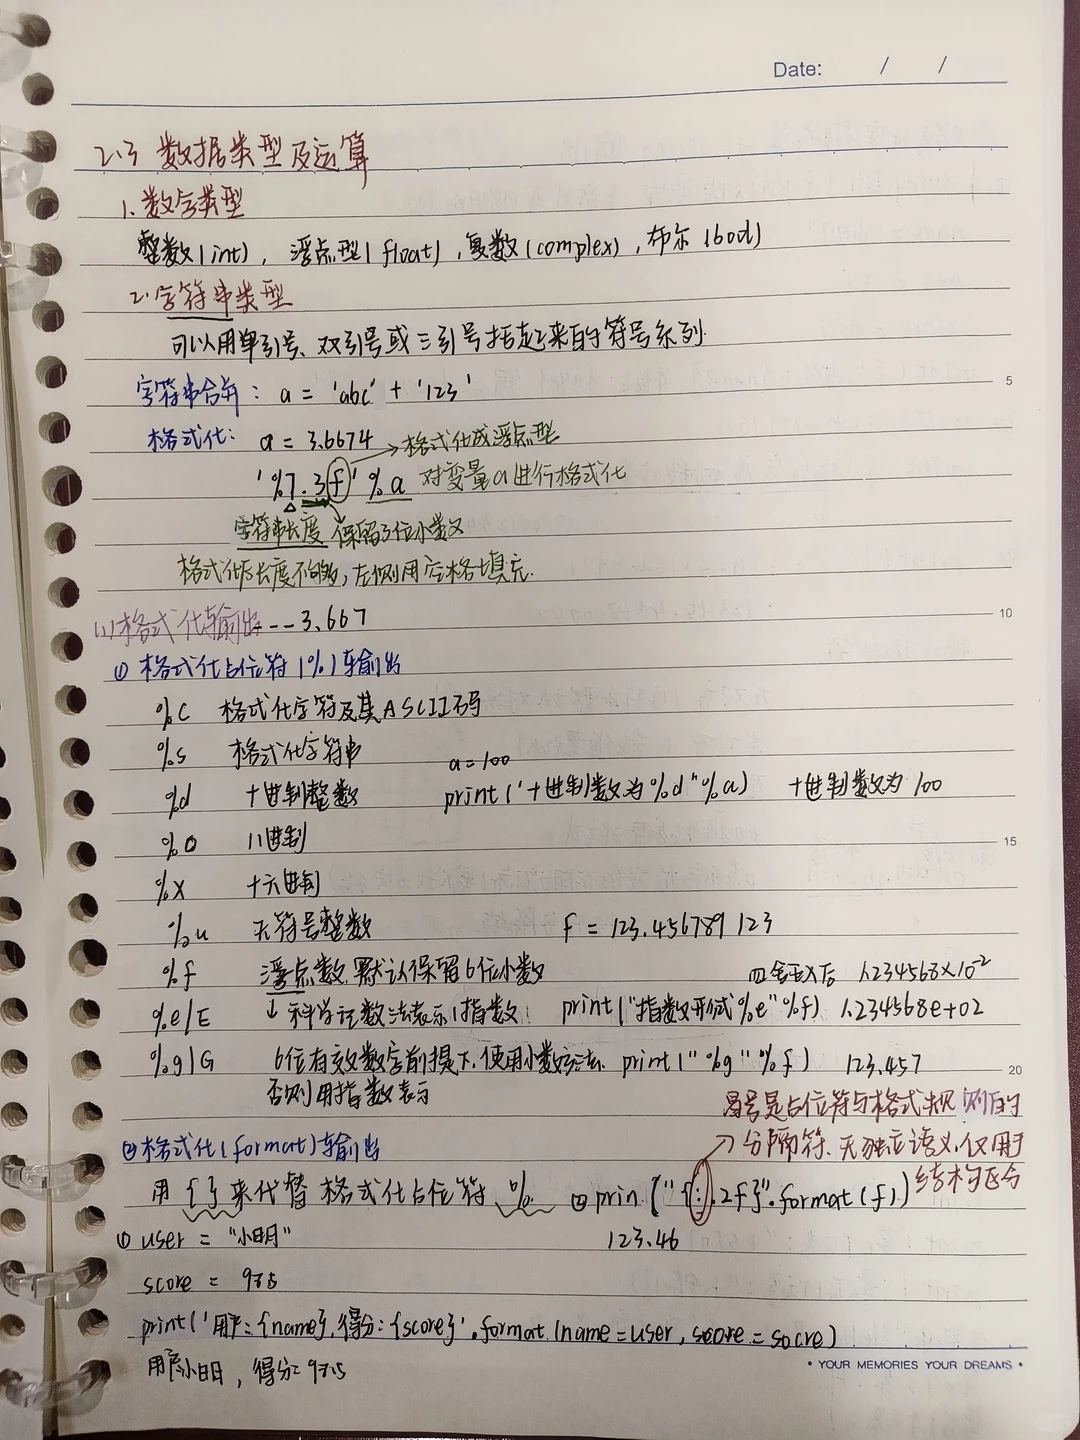 Date: / /
2.3 数据类型及运算
1.数字类型
整数(int),浮点型(float),复数(complex),布尔(bool)
2.字符串类型
可以用单引号、双引号或三引号括起来的符号系列.
5
字符串合并: a = 'abc' + '123'
格式化: a = 3.6674 →格式化成浮点型
'%7.3f' % a 对变量a进行格式化
字符串长度 保留3位小数
格式化后长度不够,左侧用空格填充.
10
(1)格式化输出 --3.667
① 格式化占位符(%)输出
%c 格式化字符及其ASCII码
%s 格式化字符串 a=100
%d 十进制整数 print('十进制数为%d"%a) 十进制数为100
15
%o 八进制
%x 十六进制
%u 无符号整数 f = 123.456789123
%f 浮点数,默认保留6位小数 四舍五入后 1.234568×10⁻²
%e/E ↓科学记数法表示(指数) print("指数形式%e"%f) 1.234568e+02
%g/G 6位有效数字前提下,使用小数方法. print("%g"%f) 123.457
20
否则用指数表示
冒号是占位符与格式规则的
→分隔符.无独立语义.仅用于
结构区分
②格式化(format)输出
用{}来代替格式化占位符% ② prin("{:.2f}".format(f))
123.46
① user = "小明"
score = 97.5
print('用户:{name},得分:{score}'.format(name=user, score=socre)
用户小明,得分:97.5
• YOUR MEMORIES YOUR DREAMS •